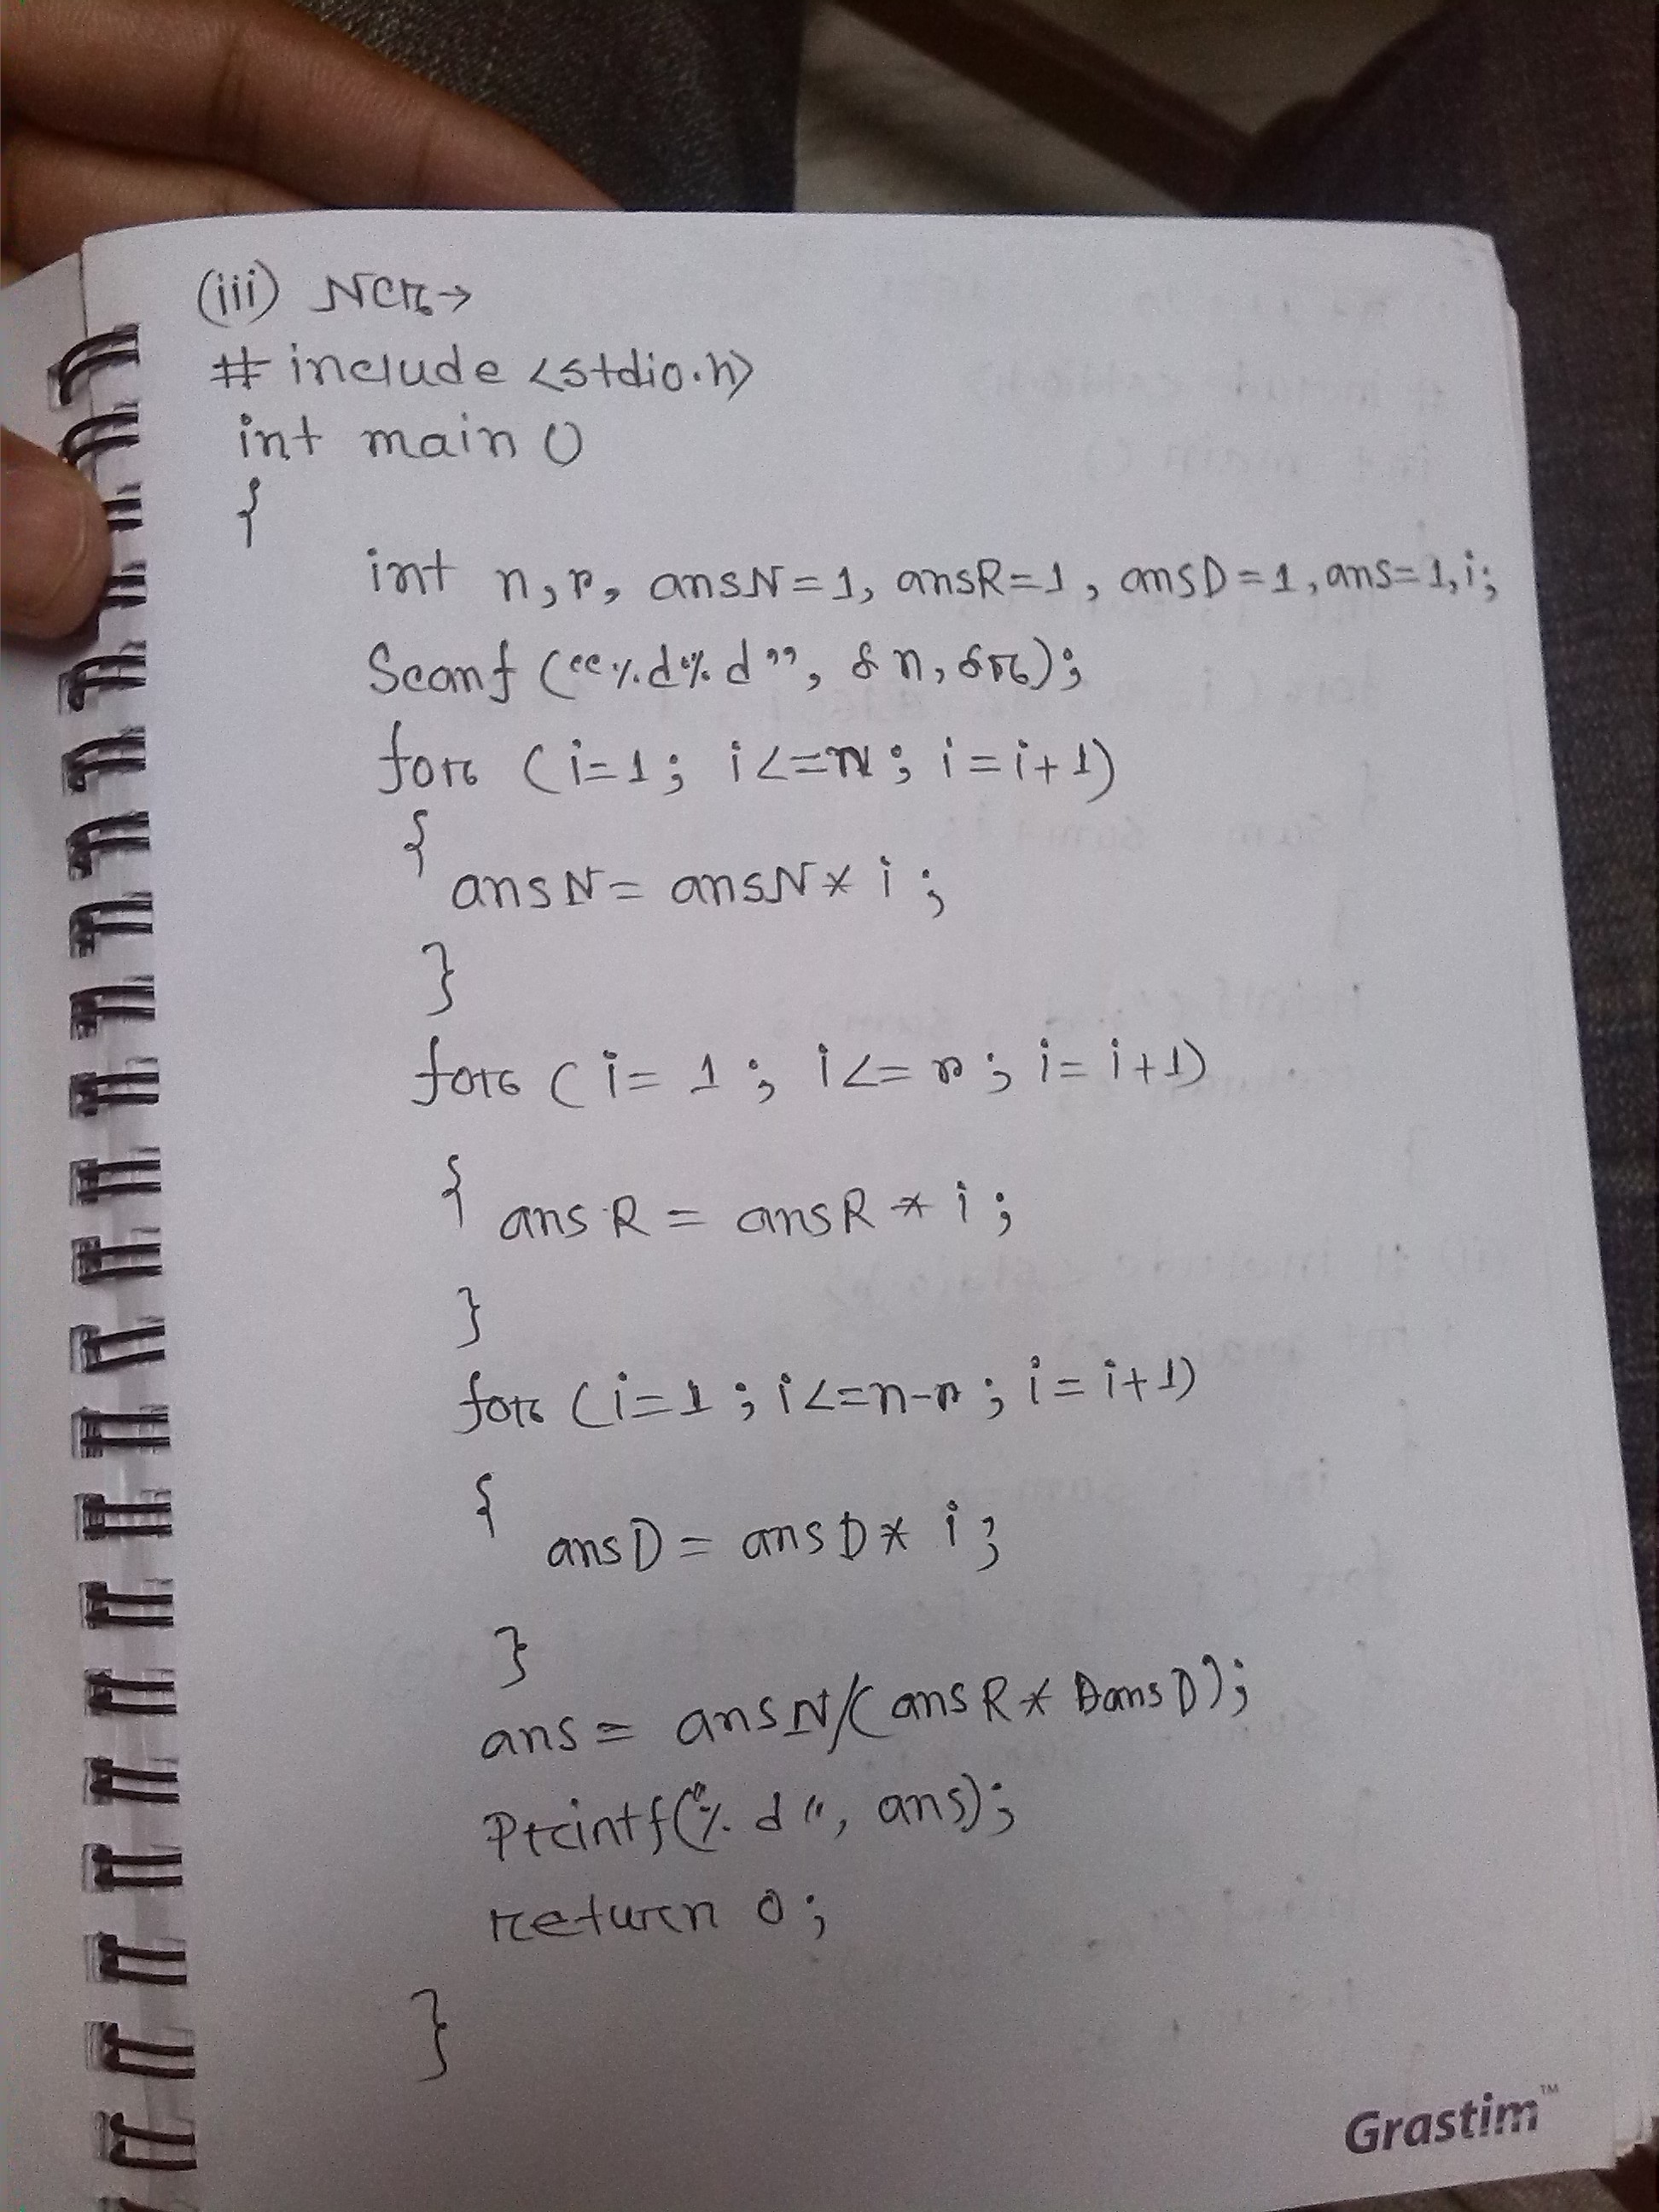 (iii) NCr→
# include <stdio.h>
int main ()
{
int n, r, ansN=1, ansR=1, ansD=1, ans=1, i;
Scanf (“%d%d”, &n, &r);
for (i=1; i<=n; i=i+1)
{
ansN= ansN* i ;
}
for (i= 1 ; i<= r ; i= i+1)
{ ansR = ansR * i ;
}
for (i=1 ; i<=n-r ; i= i+1)
{
ansD = ansD* i ;
}
ans = ansN/(ansR* ansD);
Printf("%d", ans);
return 0;
}
Grastim™